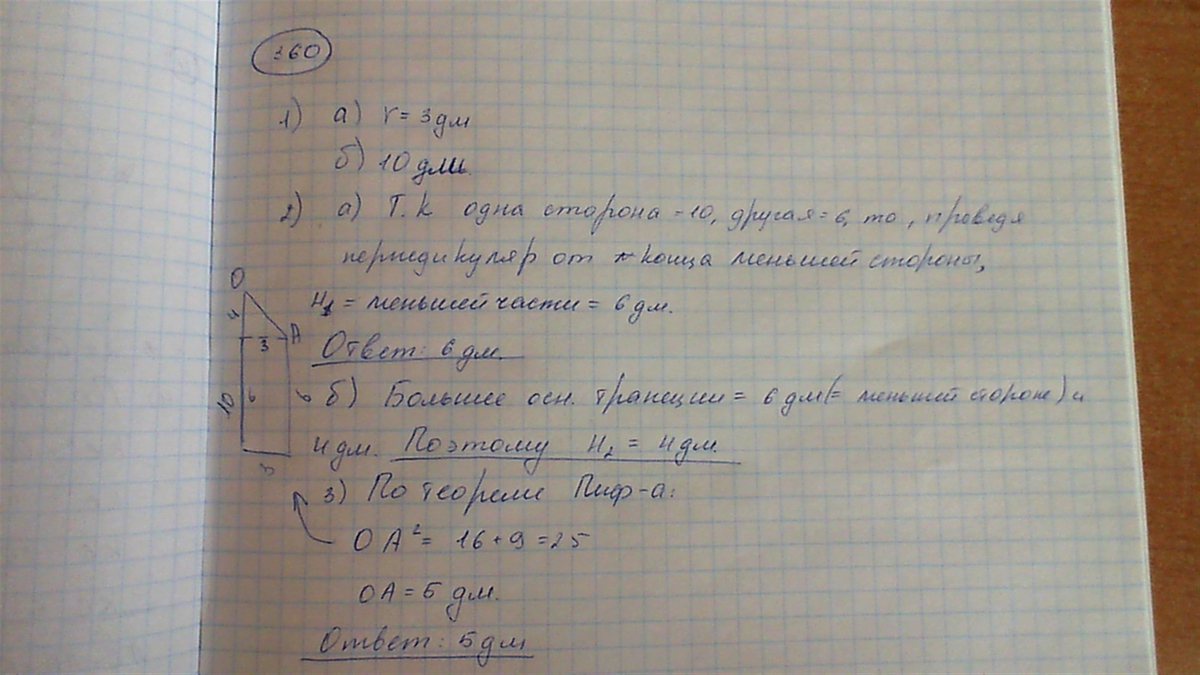 360
1) а) r = 3 дм
б) 10 дм.
2) а) Т.к одна сторона = 10, другая = 6, то, проведя
перпедикуляр от конца меньшей стороны,
H₁ = меньшей части = 6 дм.
Ответ: 6 дм.
б) Большее осн. трапеции = 6 дм (= меньшей стороне) и
4 дм. Поэтому H₂ = 4 дм.
3) По теореме Пиф-а:
OA² = 16 + 9 = 25
OA = 5 дм.
Ответ: 5 дм
O
4
A
3
10
6
6
3